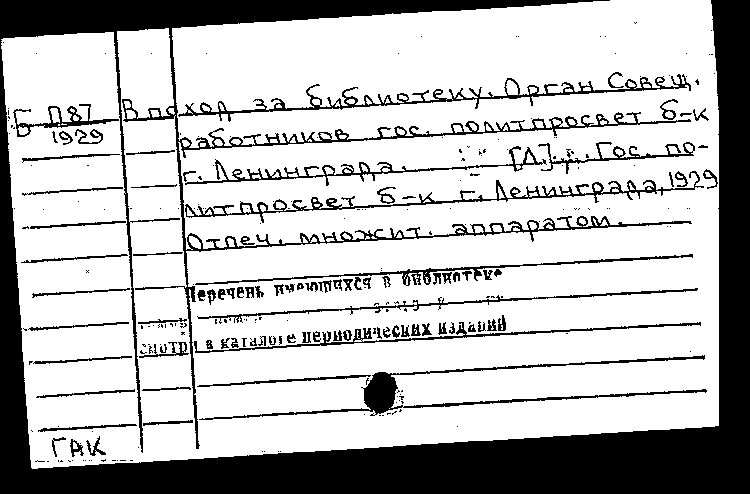 Б П87
1929
В поход за библиотеку. Орган Совещ.
работников гос. политпросвет б-к
г. Ленинграда. [Л]. Гос. по-
литпросвет б-к г. Ленинграда, 1929
Отпеч. множит. аппаратом.
Перечень имеющихся в библиотеке
смотри в каталоге периодических изданий
ГАК